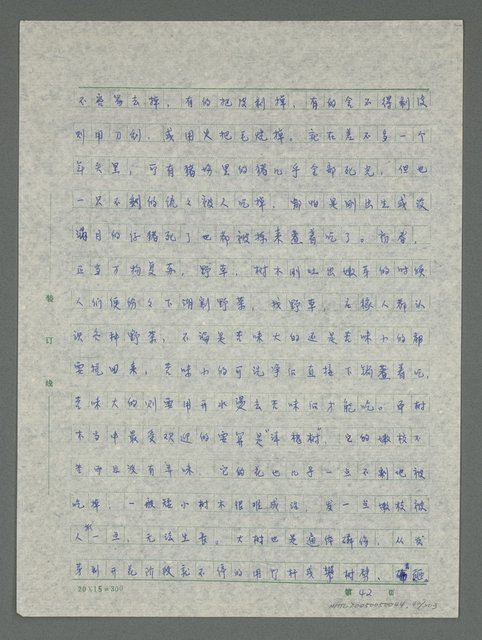 不容易去掉，有的把皮剥掉，有的舍不得剥皮
则用刀刮，或用火把毛烧掉。就在差不多一个
年头里，可有猪场里的猪几乎全部死光，但也
一只不剩的统々被人吃掉，哪怕是刚出生或没
满月的仔猪死了也都被拣来煮着吃了。初春，
正当万物复苏，野草，树木刚吐出嫩芽的时候
人们便纷々下湖割野菜，找野草，庄稼人都认
识各种野菜，不论是苦味大的还是苦味小的都
要挖回来，苦味小的可洗净后直接下锅煮着吃，
苦味大的则要用开水烫去苦味后才能吃。而树
木当中最受欢迎的要算是“洋槐树”，它的嫩枝不
苦而且没有异味，它的花也几乎一点不剩地被
吃掉，一般矮小树木很难成活，发一点嫩枝被
人折一点，无法生长。大树也是遍体磷伤，从发
芽到开花阶段就不停的用竹杆或攀树臂，
装
订
线
20×15=300
第 42 页